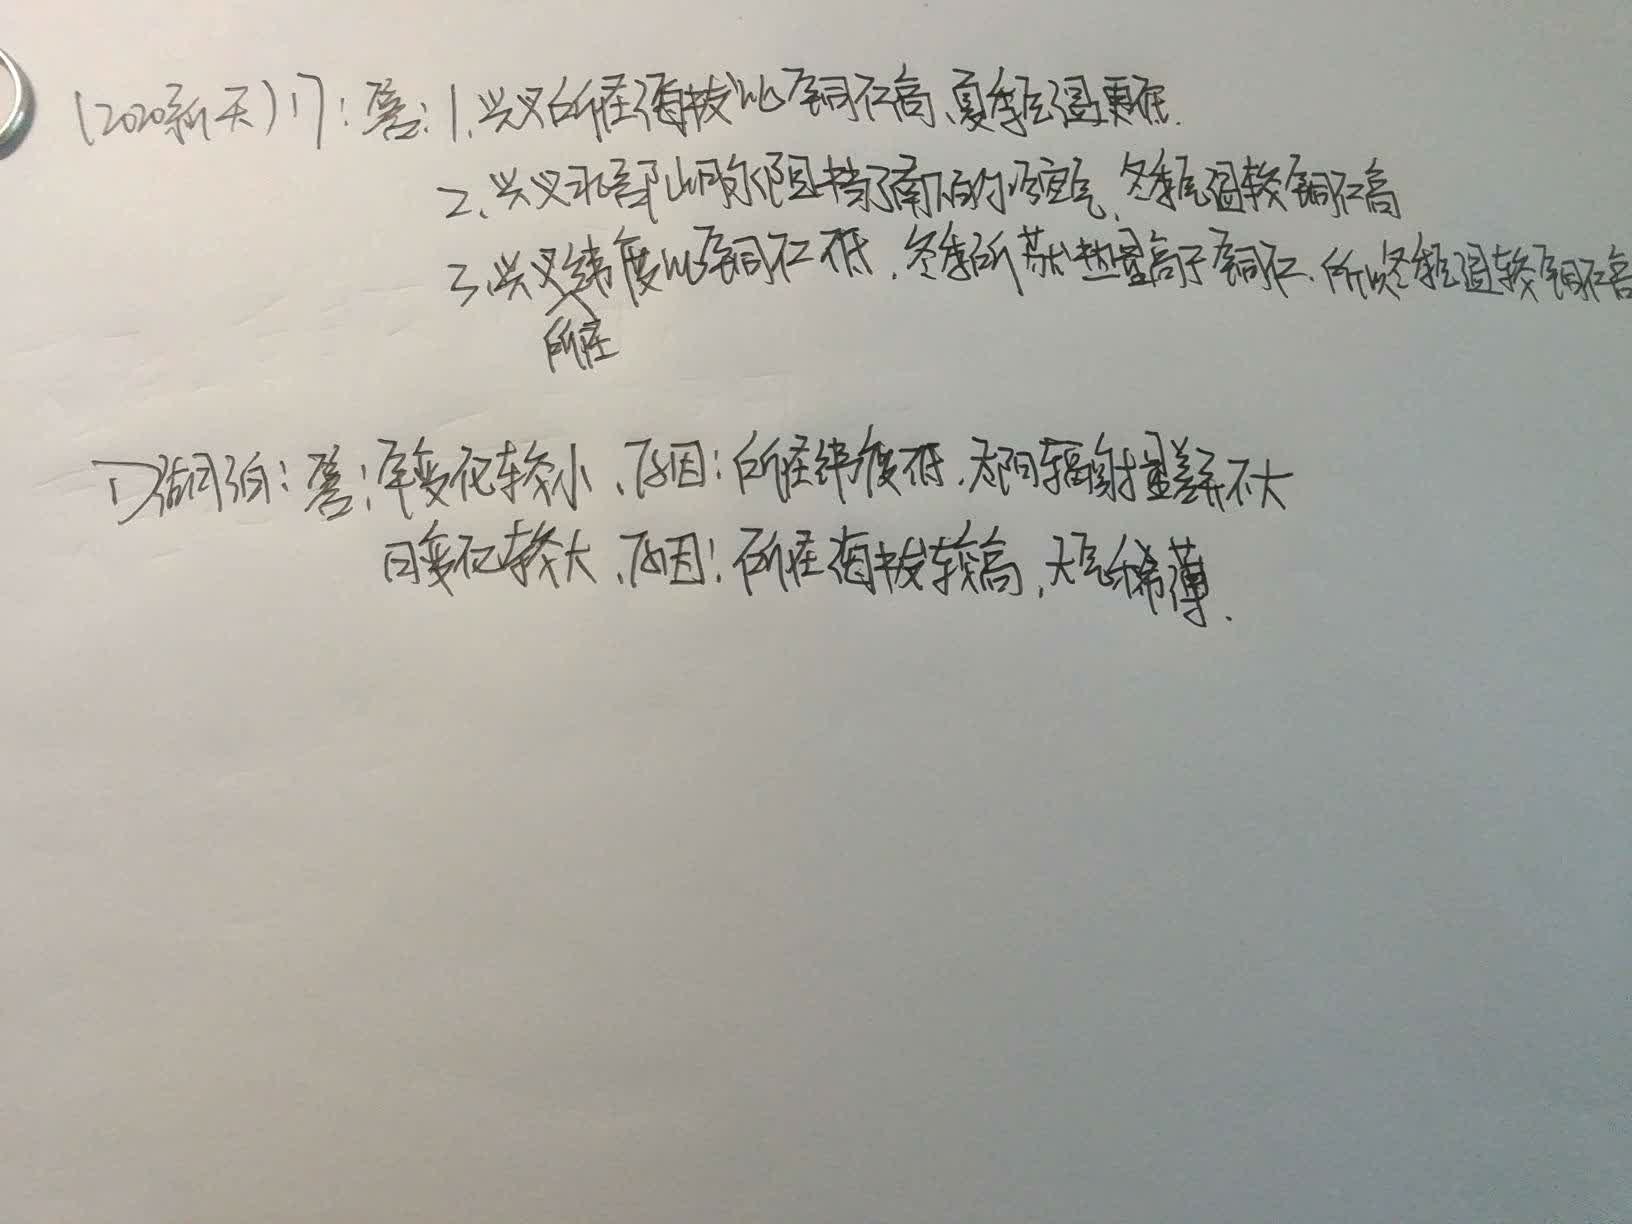 (2020新天)17:答:1.兴义所在海拔比铜仁高、夏季气温更低.
2、兴义北部山脉阻挡了南下的冷空气、冬季气温较铜仁高
3、兴义纬度比铜仁低、冬季所获热量高于铜仁、所以冬季气温较铜仁高
所在
答:年变化较小、原因:所在纬度低、太阳辐射量差异不大
日变化较大、原因:所在海拔较高、大气稀薄.